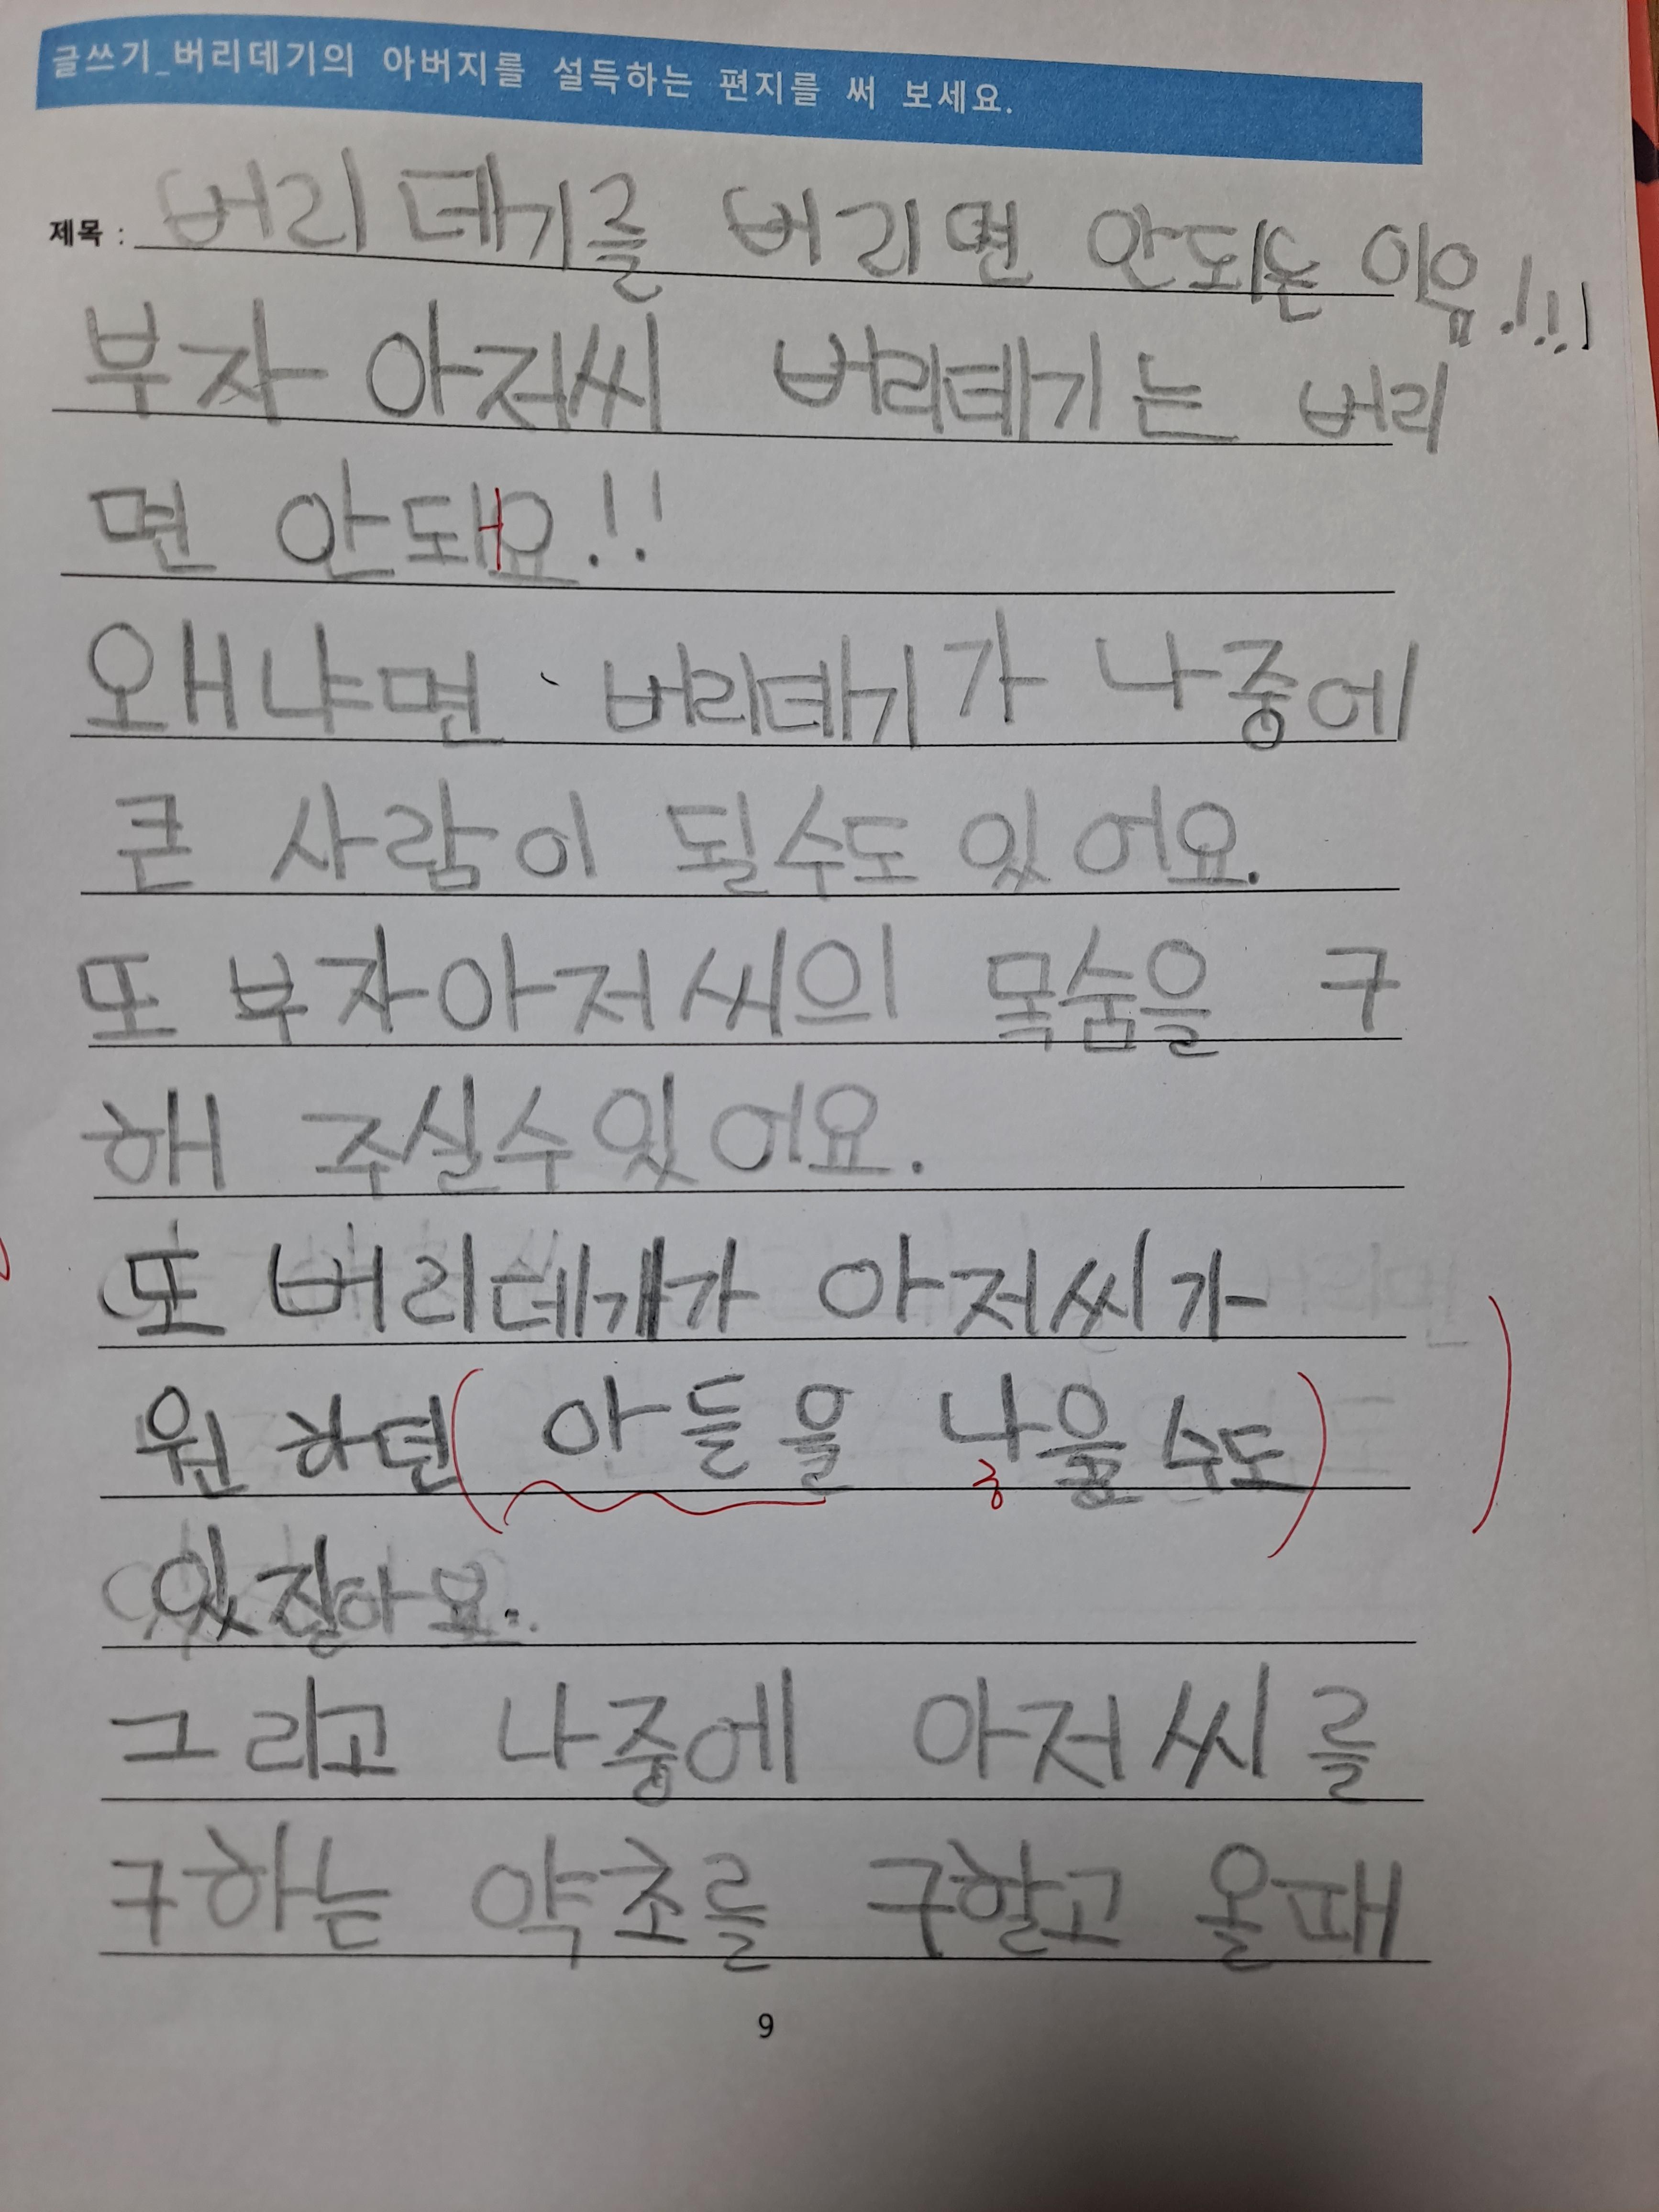 글쓰기_버리데기의 아버지를 설득하는 편지를 써 보세요.
제목 : 버리데기를 버리면 안되는 이유!!!
부자 아저씨 버리데기는 버리
면 안돼요!!
왜냐면 버리데기가 나중에
큰 사람이 될수도 있어요.
또 부자아저씨의 목숨을 구
해 주실수있어요.
또 버리데개가 아저씨가
원하던 (아들을 나을수도)
ㅎ
있잖아요.
그리고 나중에 아저씨를
구하는 약초를 구할고 올때
9